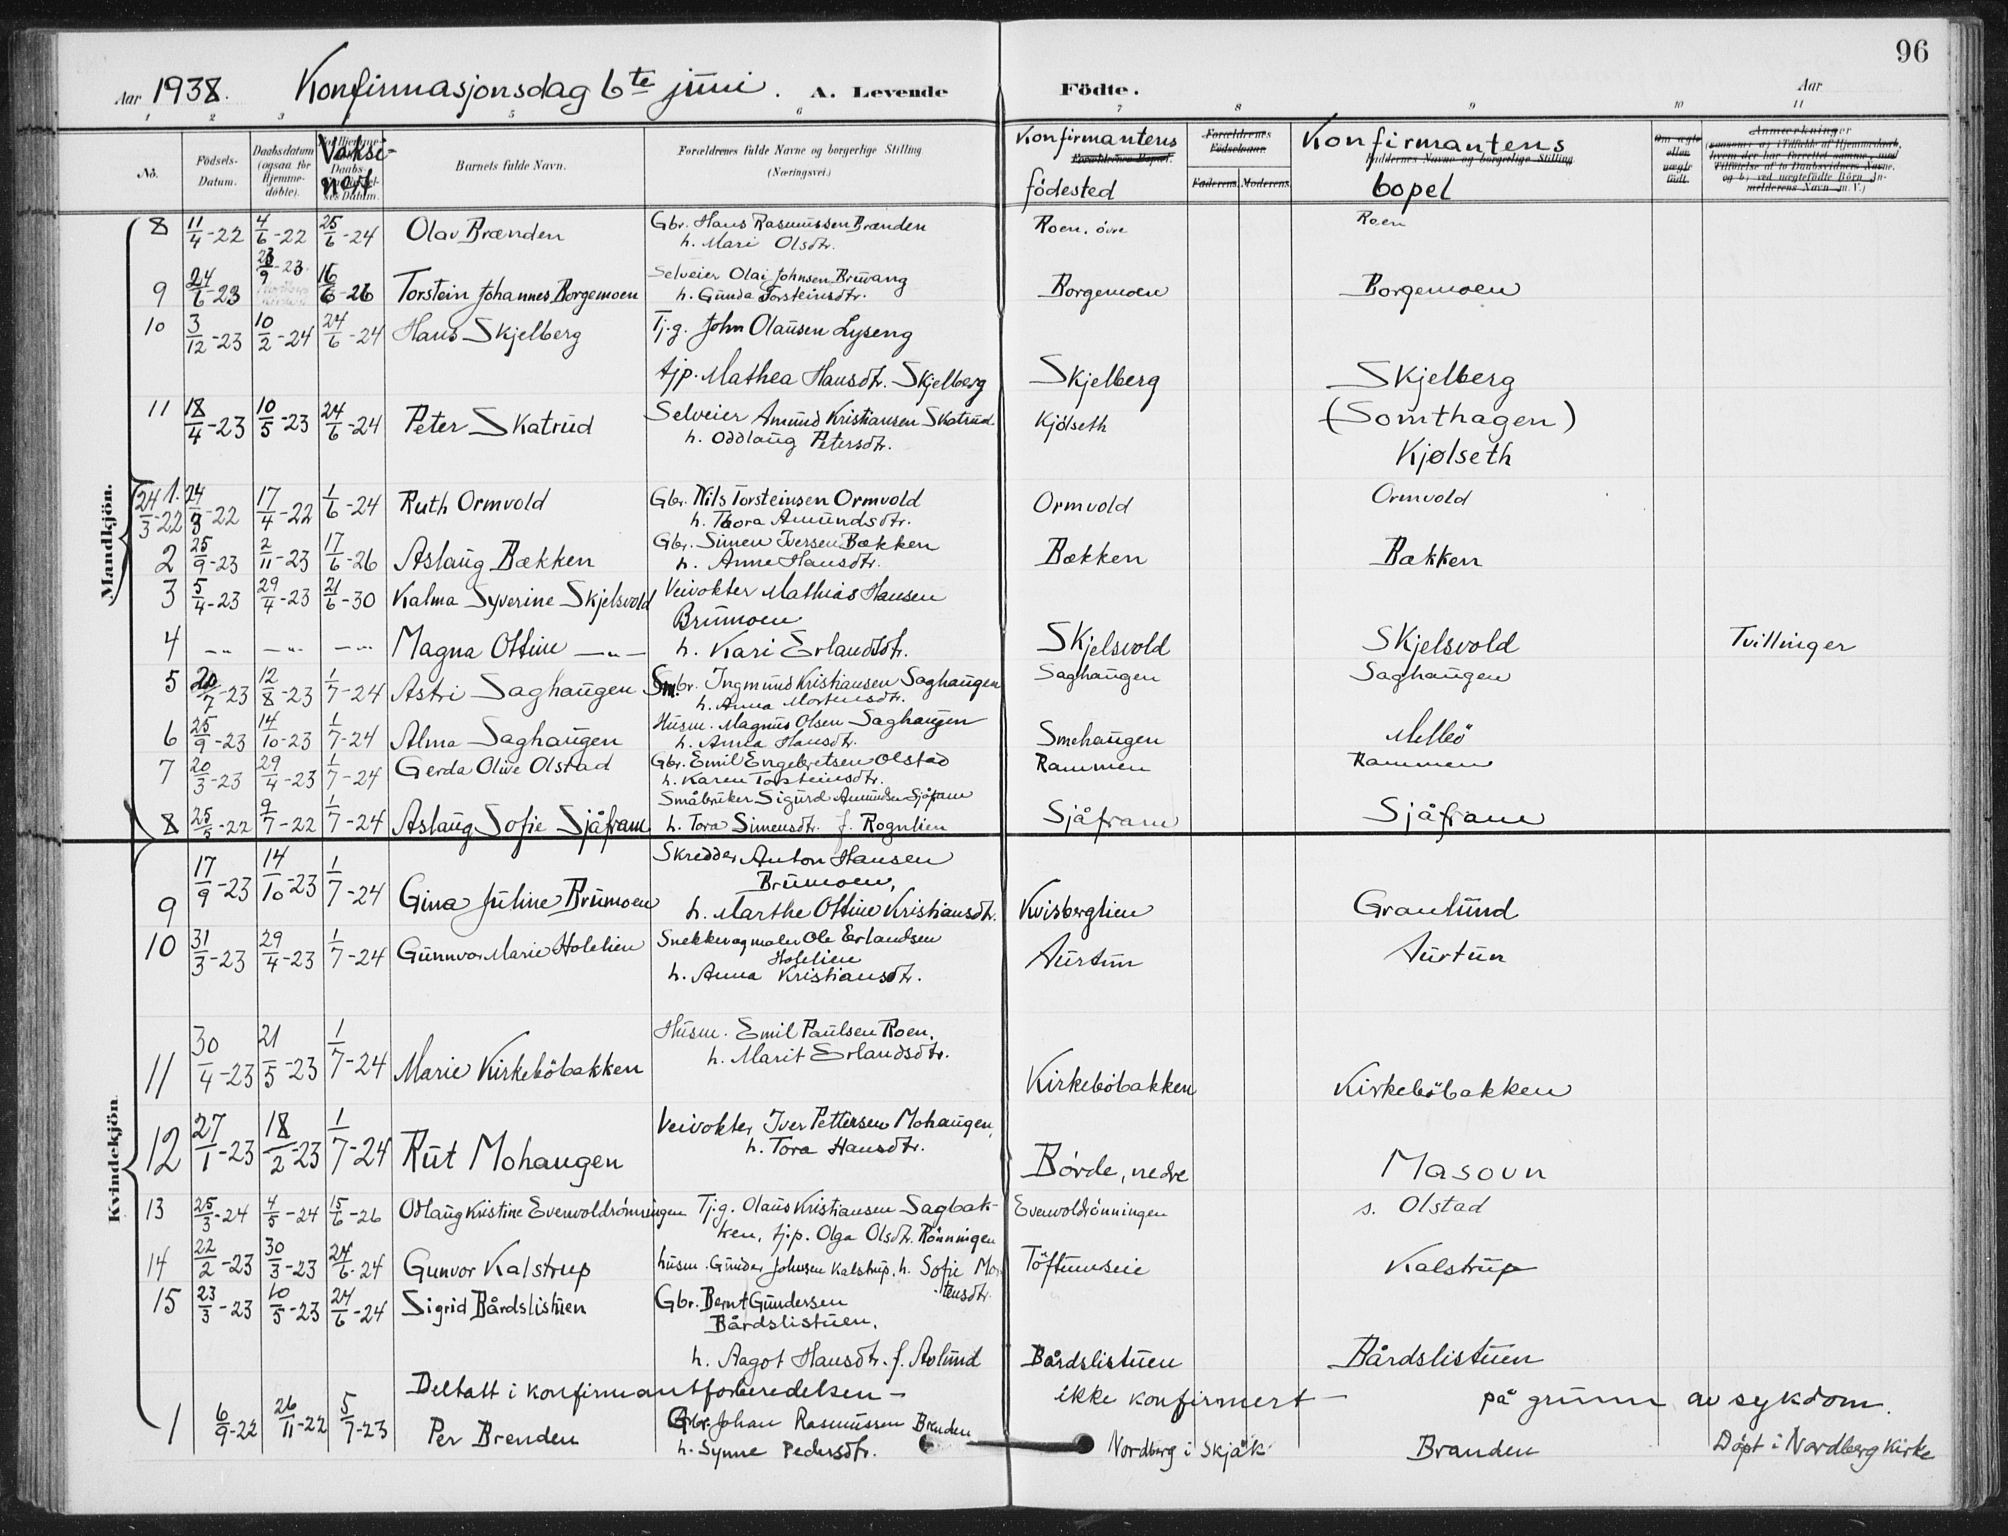 96
Aar 1938. Konfirmasjonsdag 6te juni. A. Levende Födte. Aar
1 2 3 5 6 7 8 9 10 11
No. Födsels-Datum. Daabsdatum (ogsaa for Hjemme-döbte). Vaksinert Barnets fulde Navn. Forældrenes fulde Navne og borgerlige Stilling (Næringsvei.) Konfirmantens födested Forældrenes Födselsaar. Faderens Moderens Konfirmantens bopel
Faddernes Navne og borgerlige Stilling
Om ægte eller uægte födt.
Anmærkninger
Mandkjön.
8 11/4-22 4/6-22 25/6-24 Olav Brænden Gbr. Hans Rasmussen Brænden Roen. övre Roen
h. Mari Olsdtr.
23/9-23. Selveier Olai Johnsen Bruvang
9 24/6-23 16/6-26 Torstein Johannes Borgemoen h. Gunda Torsteinsdtr. Borgemoen Borgemoen
10 3/12-23 10/2-24 24/6-24 Hans Skjelberg Tj.g. John Olausen Lyseng
tjp. Mathea Hansdtr. Skjelberg Skjelberg Skjelberg
11 18/4-23 10/5-23 24/6-24 Peter Skatrud Selveier Amund Kristiansen Skatrud Kjölseth (Somthagen)
h. Oddlaug Petersdtr. Kjølseth
24/3-22 1. 24/3-22 17/4-22 1/6-24 Ruth Ormvold Gbr. Nils Torsteinsen Ormvold Ormvold Ormvold
h. Thora Amundsdtr.
2 25/9-23 2/11-23 17/6-26 Aslaug Bækken Gbr. Simen Iversen Bækken Bækken Bækken
h. Anne Hansdtr.
3 5/4-23 29/4-23 21/6-30 Kalma Syverine Skjelsvold Veivokter Mathias Hansen
Brumoen
4 -"- -"- -"- Magna Ottine -"- h. Kari Erlandsdtr. Skjelsvold Skjelsvold Tvillinger
5 20/7-23 12/8-23 1/7-24 Astri Saghaugen Smbr. Ingmund Kristiansen Saghaugen Saghaugen Saghaugen
h. Anna Mortensdtr.
6 25/9-23 14/10-23 1/7-24 Alma Saghaugen Husm. Magnus Olsen Saghaugen Smehaugen Mellö
h. Anna Hansdtr.
7 20/3-23 29/4-23 1/7-24 Gerda Olive Olstad Gbr. Emil Engebretsen Olstad Rammen Rammen
h. Karen Torsteinsdtr.
Småbruker Sigurd Amundsen Sjåfram
8 25/5-22 9/7-22 1/7-24 Aslaug Sofie Sjåfram h. Tora Simensdtr. f. Rognlien Sjåfram Sjåfram
Kvindekjön
Skredder Anton Hansen
Brumoen,
9 17/9-23 14/10-23 1/7-24 Gina Juline Brumoen h. Marthe Ottine Kristiansdtr. Kvisberglien Granlund
10 31/3-23 29/4-23 1/7-24 Gunnvor Marie Holelien Snekker og maler Ole Erlandsen Aurtun Aurtun
Holelien
h. Anna Kristiansdtr.
11 30/4-23 21/5-23 1/7-24 Marie Kirkeböbakken Husm. Emil Paulsen Roen. Kirkeböbakken Kirkeböbakken
h. Marit Erlandsdtr.
12 27/1-23 18/2-23 1/7-24 Rut Mohaugen Veivokter Iver Pettersen Mohaugen, Börde, nedre Masovn
h. Tora Hansdtr.
13 25/3-24 4/5-24 15/6-26 Odlaug Kristine Evenvoldrønningen Tj.g. Olaus Kristiansen Sagbak- Evenvoldrönningen s. Olstad
ken, tj.p. Olga Olsdtr. Rønningen
14 22/2-23 30/3-23 24/6-24 Gunvor Kalstrup husm. Gunder Johnsen Kalstrup, h. Sofie Mor- Töftumseie Kalstrup
tensdtr.
15 23/3-23 10/5-23 24/6-24 Sigrid Bårdslistuen Gbr. Bernt Gundersen
Bårdslistuen.
h. Aagot Hansdtr. f. Aslund Bårdslistuen Bårdslistuen
Deltatt i konfirmantforberedelsen - ikke konfirmert - på grunn av sykdom.
1 6/9-22 26/11-22 5/7-23 Per Brenden Gbr. Johan Rasmussen Brenden
h. Synne Pedersdtr. Nordberg i Skjåk Branden Döpt i Nordberg Kirke